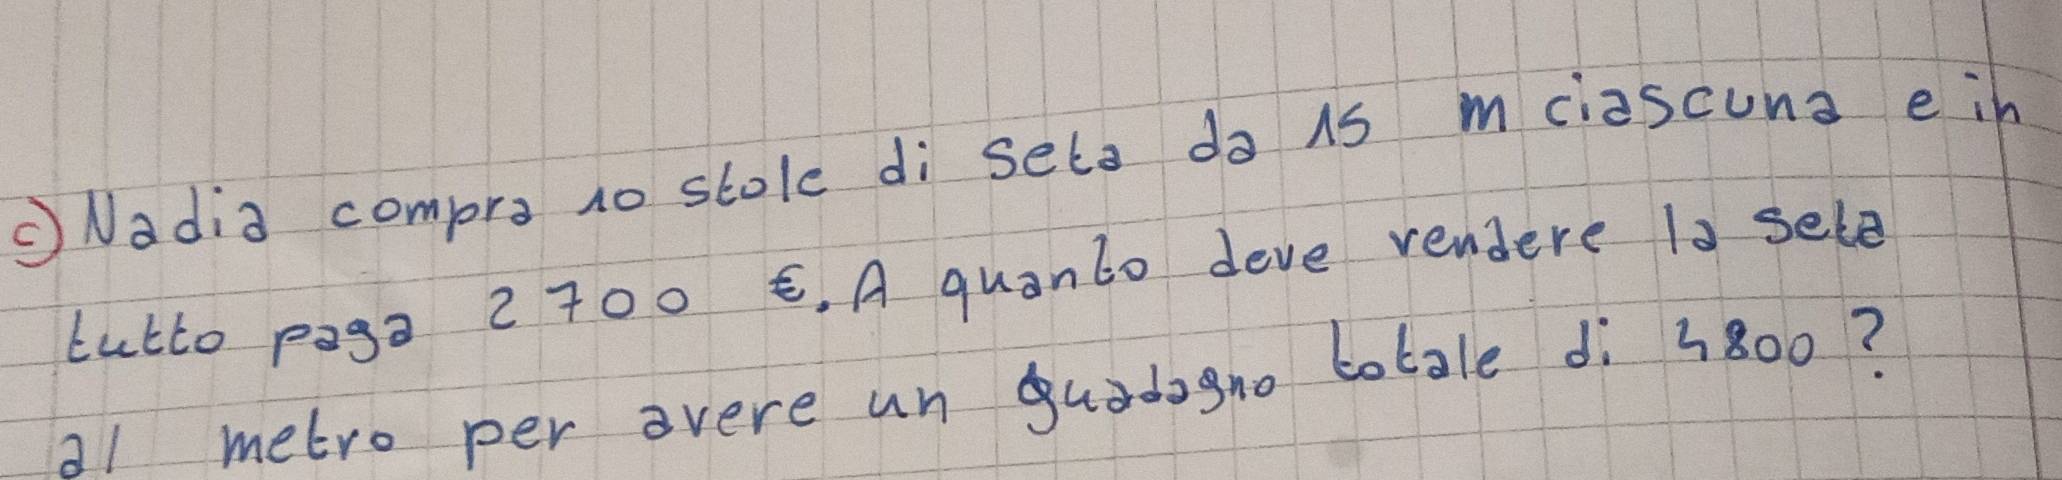 c) Nadia compra 10 stole di seta da 15 m ciascuna e in
tutto paga 2700 €. A quanto deve rendere la seta
al metro per avere un guadagno totale di 4800?